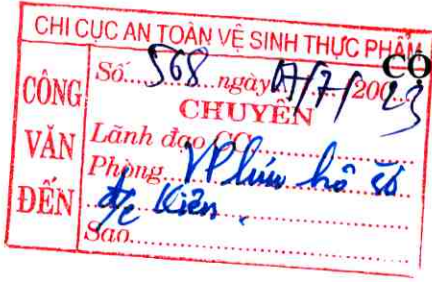 CHI CỤC AN TOÀN VỆ SINH THỰC PHẨM
CÔNG VĂN ĐẾN
Số...568...ngày 07/7/200 23
CHUYỂN
Lãnh đạo CC
Phòng VP lưu hồ sơ
đ/c Kiên.
Sao
CỘ